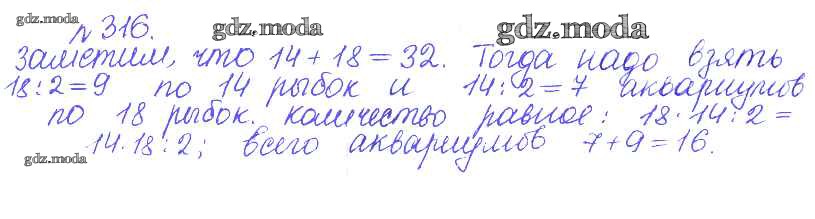 gdz.moda
№ 316.
gdz.moda
gdz.moda
Заметим, что 14 + 18 = 32. Тогда надо взять
18 : 2 = 9 по 14 рыбок и 14 : 2 = 7 аквариумов
по 18 рыбок. количество равное: 18 · 14 : 2 =
14 · 18 : 2; всего аквариумов 7 + 9 = 16.
gdz.moda